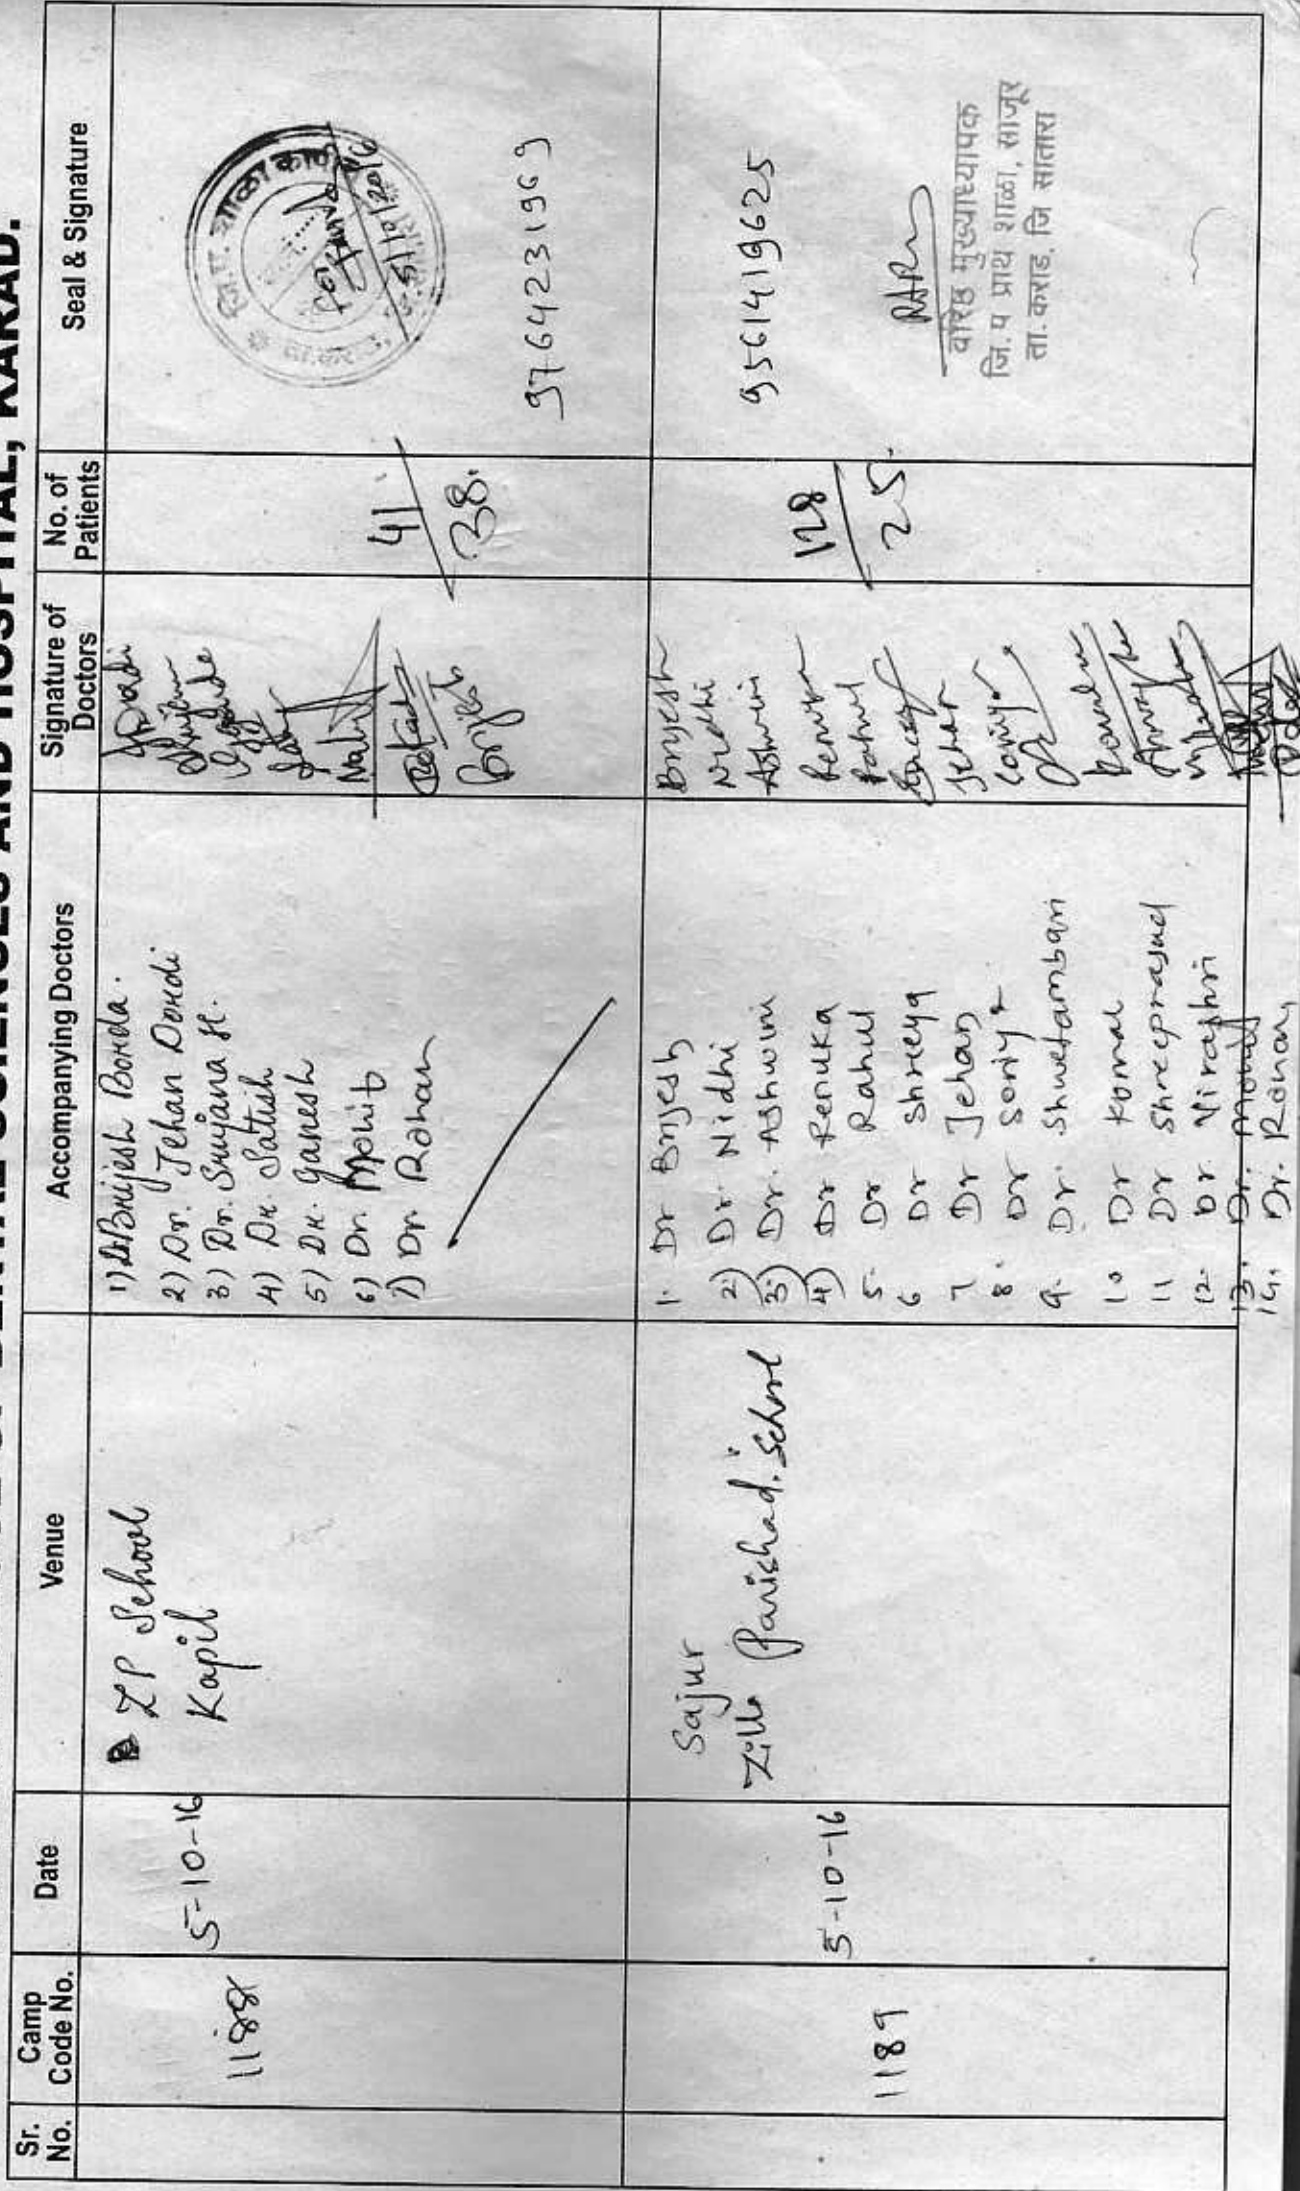 DENTAL SCIENCES AND HOSPITAL, KARAD.
Sr. No.
Camp Code No.
Date
Venue
Accompanying Doctors
Signature of Doctors
No. of Patients
Seal & Signature
1188
5-10-16
ZP School
Kapil
1) Dr Brijesh Bonda.
2) Dr. Jehan Dordi
3) Dr. Srujana H.
4) Dr. Satish
5) Dr. Ganesh
6) Dr. Mohit
7) Dr Rohan
Brijesh
41
38.
जि.प. शाळा
5/10/2016
9764231969
1189
5-10-16
Sajur
Zilla Parishad. School
1. Dr Brijesh
2) Dr. Nidhi
3) Dr. Ashwini
4) Dr Renuka
5. Dr Rahul
6 Dr Shreeya
7 Dr Jehan
8. Dr Soniya
9. Dr. Shwetambari
10 Dr Komal
11 Dr Shreeprasad
12. Dr. Virajhri
13. Dr.
14. Dr. Rohan
Brijesh
Nidhi
Ashwini
Renuka
Rahul
Jehan
Soniya
128
25.
9561419625
वरिष्ठ मुख्याध्यापक
जि. प प्राथ शाळा, साजूर
ता. कराड. जि सातारा